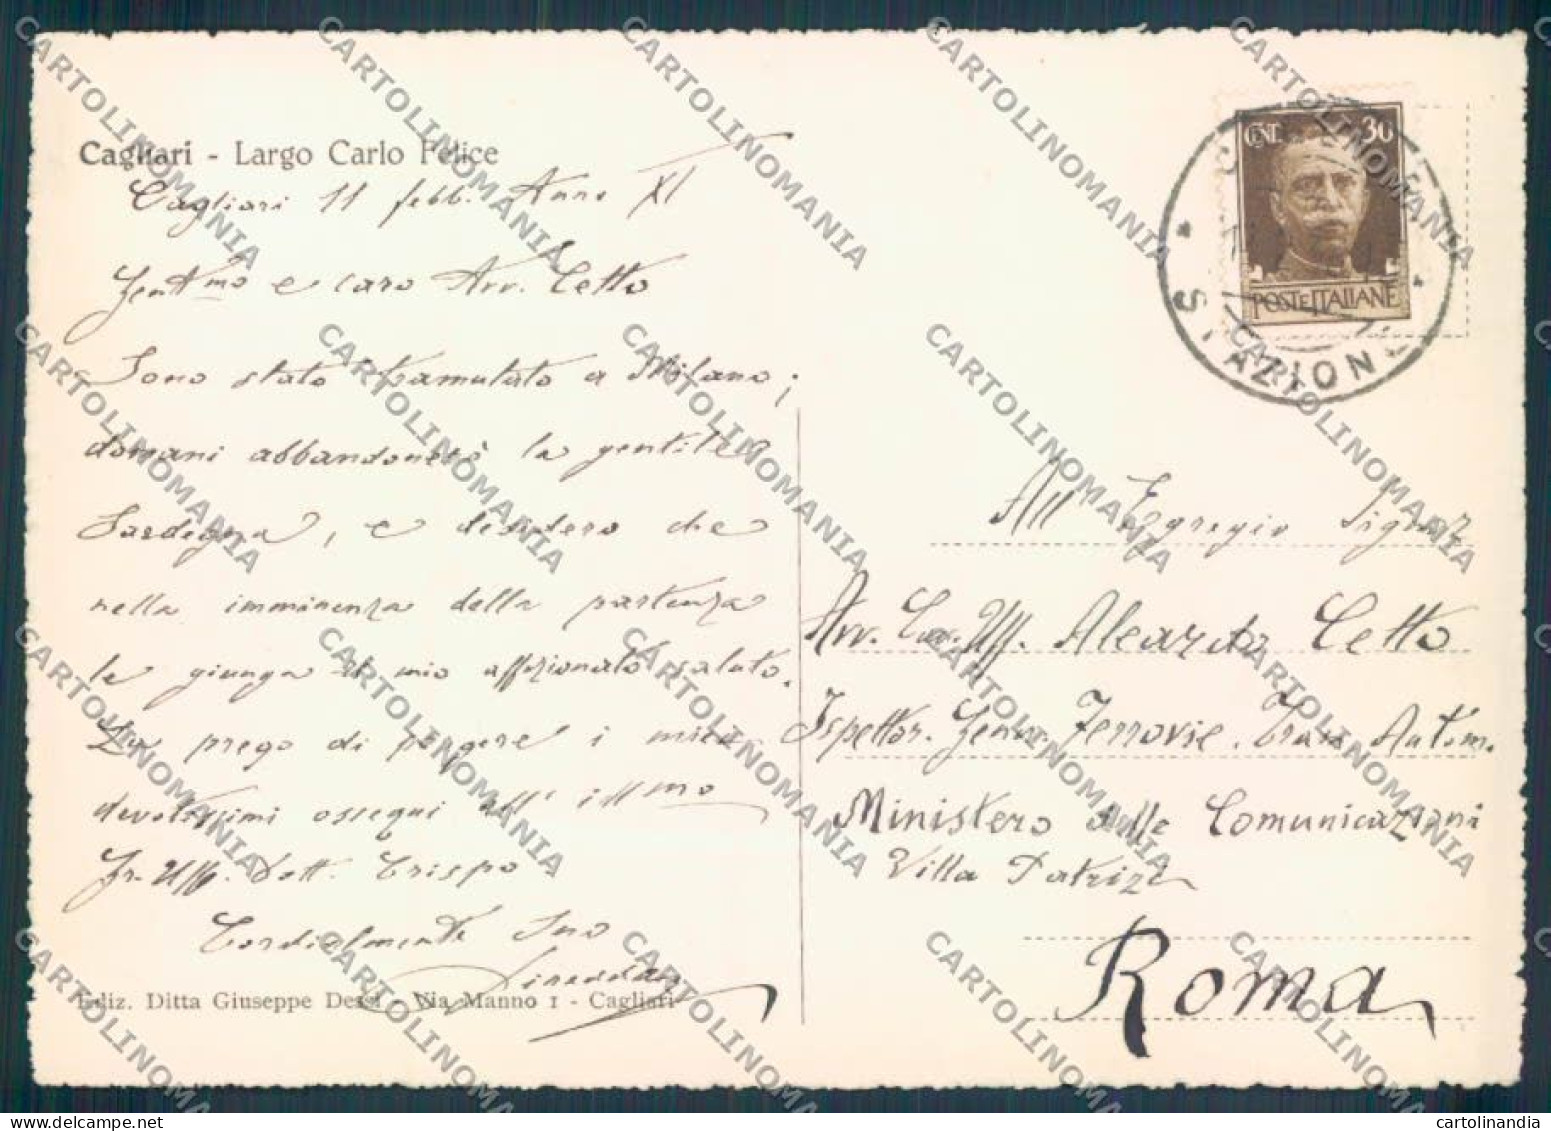 Cagliari - Largo Carlo Felice
Cagliari 11 febb. Anno XI
Gentmo e caro Avv. Cetto
Sono stato tramutato a Milano;
domani abbandonerò la gentile
Sardegna, e desidero che
nella imminenza della partenza
le giunga il mio affezionato saluto.
La prego di porgere i miei
devotissimi ossequi all' illmo
Gr. Uff. Dott. Crispo
Cordialmente Suo
Ediz. Ditta Giuseppe Dessì - Via Manno 1 - Cagliari
CENT. 30
POSTE ITALIANE
STAZIONE
All' Egregio Signor
Avv. Cav. Uff. Alearto Cetto
Ispettor. Gen. Ferrovie. Tram Autom.
Ministero delle Comunicazioni
Villa Patrizi
Roma
CARTOLINOMANIA
cartolinandia